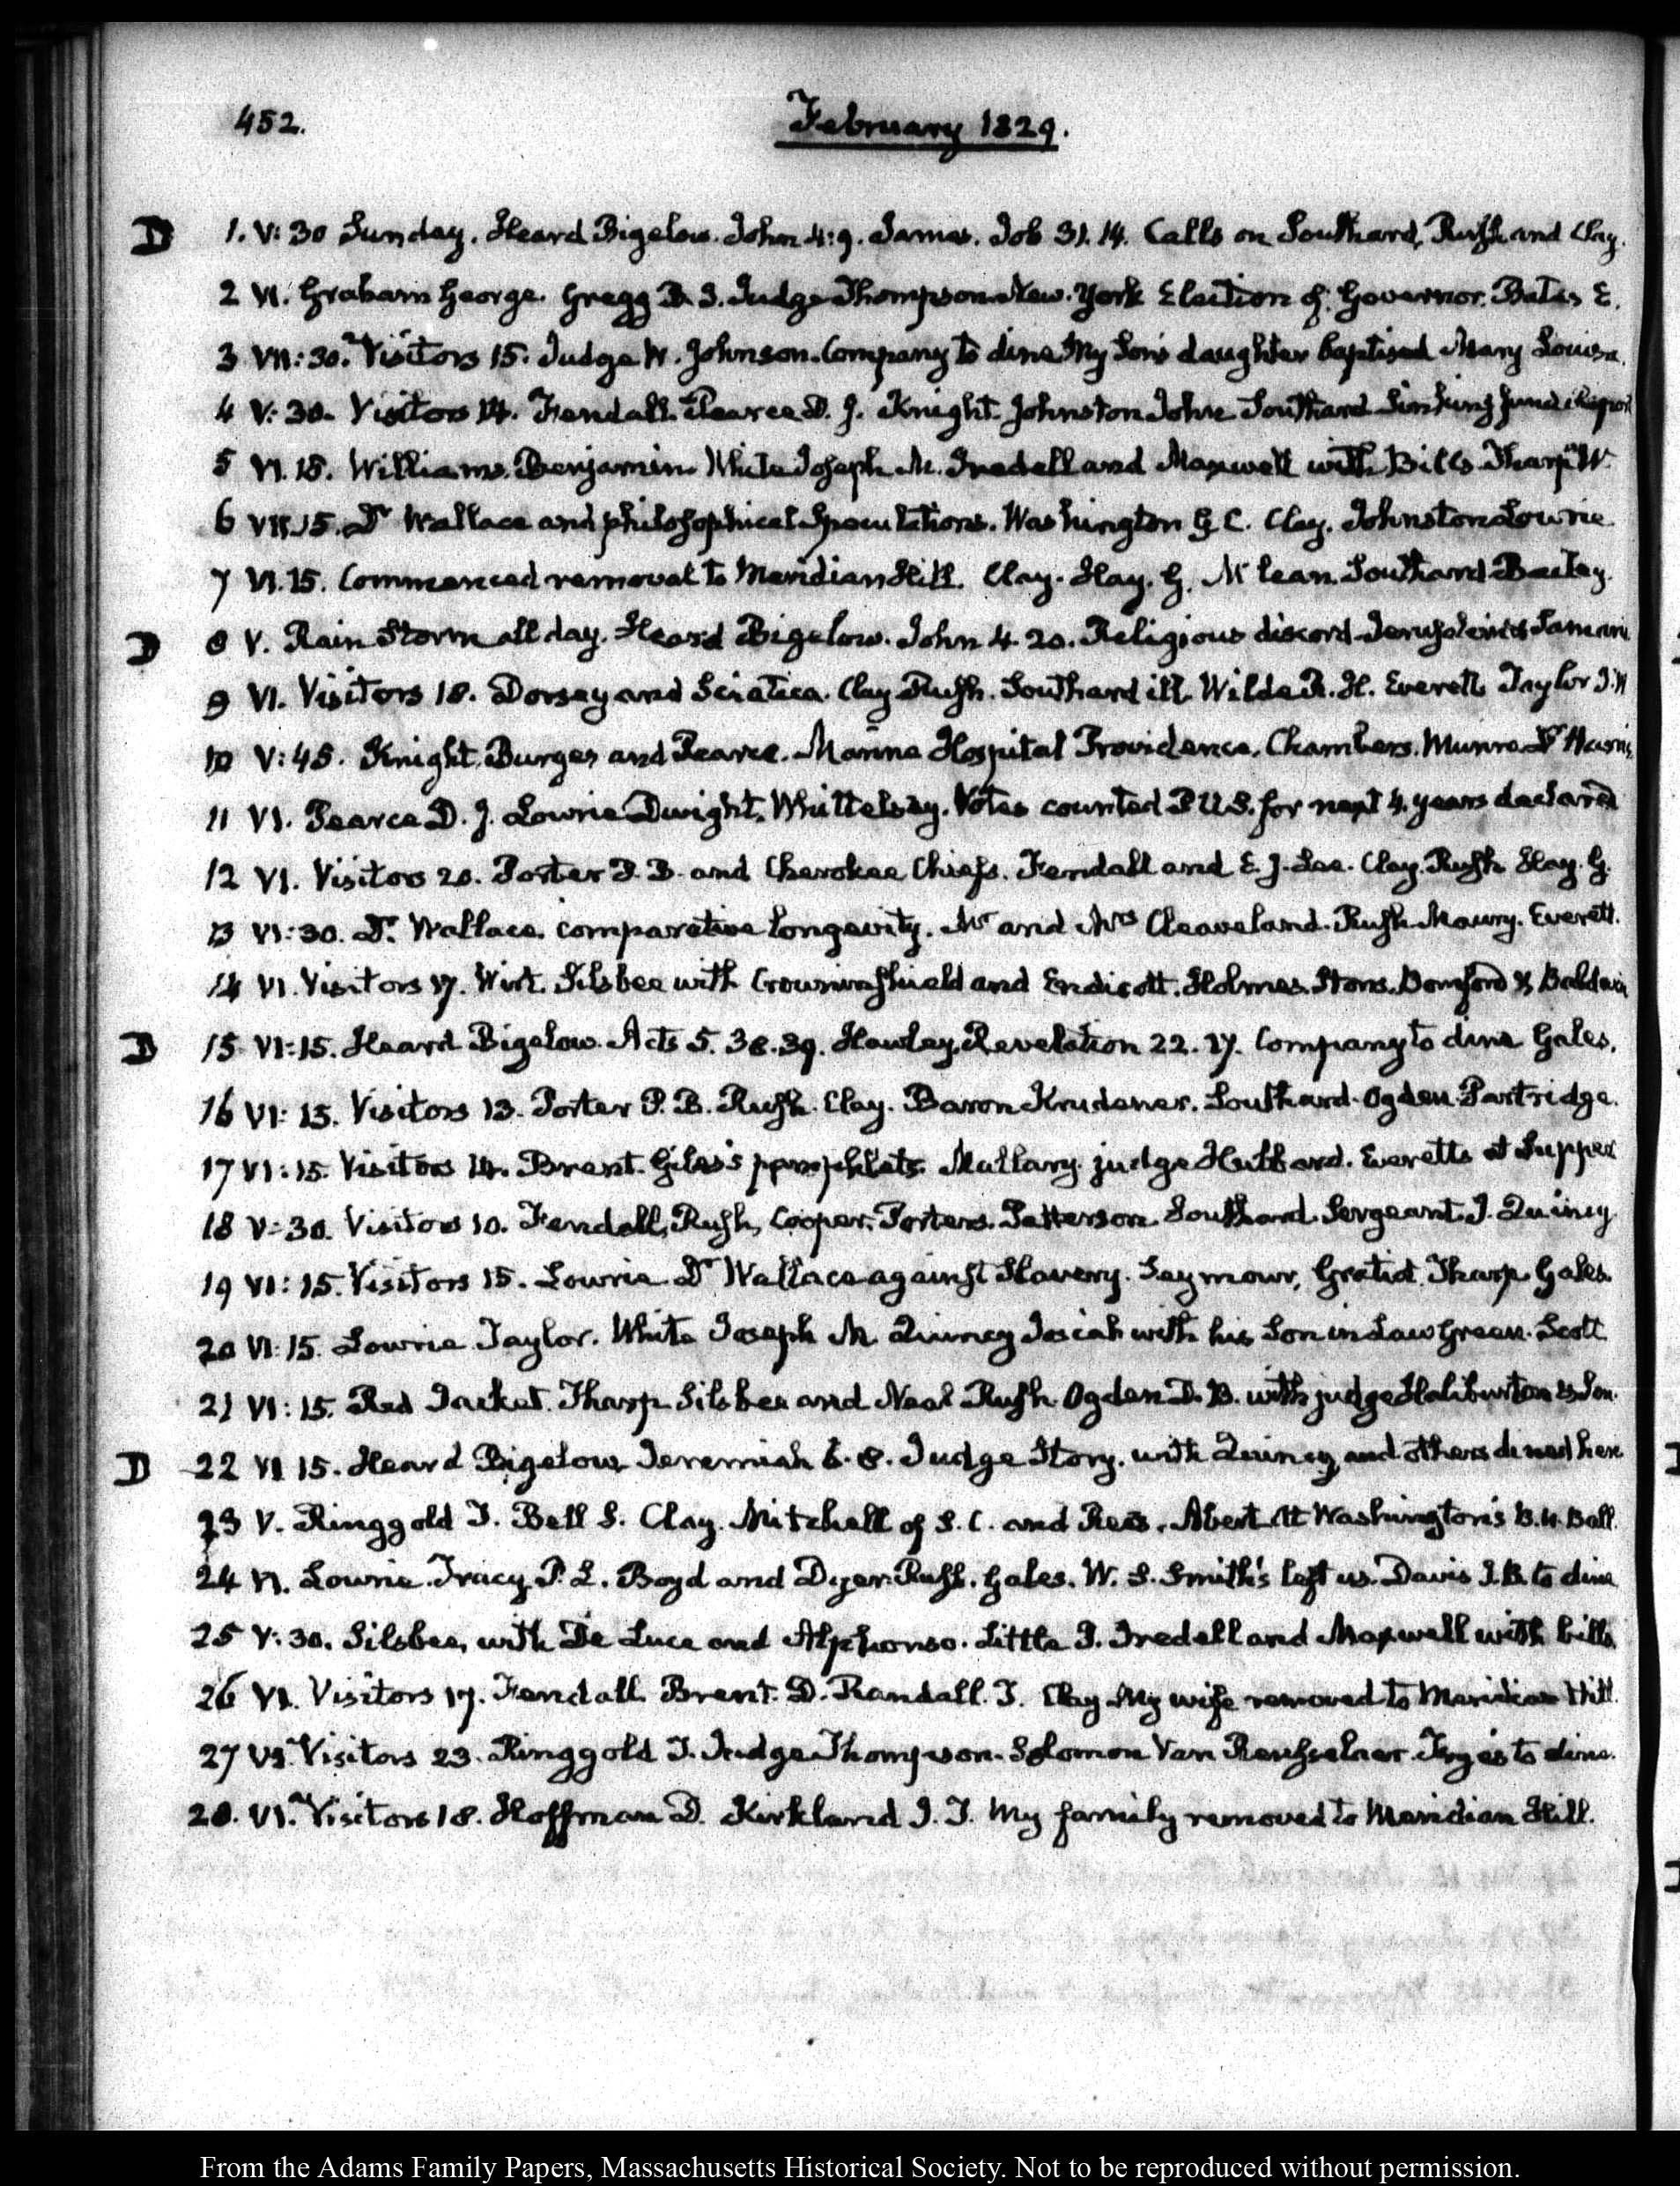 452.
February 1829.
D 1. V: 30 Sunday. Heard Bigelow. John 4:9. James. Job 31.14. Calls on Southard, Rush and Clay.
2 VI. Graham George. Gregg Judge Thompson New-York Election of Governor. Bates E.
3 VII: 30. Visitors 15. Judge W. Johnson. Company to dine My Son's daughter baptised Mary Louisa.
4 V: 30. Visitors 14. Fendall. Pearce D. J. Knight. Johnston John Southard Sinking fund Report
5 VI. 15. Williams. Benjamin. White Joseph M. Iredell and Maxwell with Bills Tharp W.
6 VII. 15. Dr Wallace and philosophical Speculations. Washington G. C. Clay. Johnston Lowrie
7 VI. 15. Commenced removal to Meridian Hill. Clay. Hay. G. McLean. Southard Bailey.
D 8 V. Rain Storm all day. Heard Bigelow. John 4. 20. Religious discord Jerusalem
9 VI. Visitors 18. Dorsey and Sciatica. Clay Rush. Southard ill. Wilde R. H. Everett Taylor J. W
10 V: 45. Knight, Burges and Pearce. Marine Hospital Providence. Chambers. Munro Dr
11 VI. Pearce D. J. Lowrie Dwight. Whittelsey. Votes counted P U S. for next 4 years declared
12 VI. Visitors 20. Porter P. B. and Cherokee Chiefs. Fendall and E. J. Lee. Clay. Rush Hay. G.
13 VI: 30. Dr. Wallace. comparative longevity. Mr and Mrs Cleaveland. Rush. Maury. Everett.
14 VI. Visitors 17. Wirt. Silsbee with Crowninshield and Endicott. Holmes. Bomford & Baldwin
D 15 VI: 15. Heard Bigelow. Acts 5. 38. 39. Hawley, Revelation 22. 17. Company to dine Gales.
16 VI: 15. Visitors 13. Porter P. B. Rush. Clay. Baron Krudener. Southard. Ogden. Partridge.
17 VI: 15. Visitors 14. Brent. Giles's pamphlets. Mallary. judge Hubbard. Everetts at Supper
18 V: 30. Visitors 10. Fendall, Rush, Cooper. Porters. Patterson. Southard. Sergeant. J. Quincy
19 VI: 15. Visitors 15. Lowrie Dr Wallace against Slavery. Seymour, Gratiot. Tharp. Gales.
20 VI: 15. Lowrie Taylor. White Joseph M Quincy Josiah with his Son in Law Green. Scott
21 VI: 15. Red Jacket. Tharp Silsbee and Neal Rush Ogden D. B. with judge Haliburton & Son.
D 22 VI 15. Heard Bigelow Jeremiah 6. 8. Judge Story. with Quincy and others dined here
23 V. Ringgold T. Bell S. Clay. Mitchell of S. C. and Rees. Abert At Washington's B. N. Ball.
24 VI. Lowrie. Tracy P. L. Boyd and Dyer. Rush. Gales. W. S. Smith's left us. Davis to dine
25 V: 30. Silsbee, with De Luce and Alphonso. Little P. Iredell and Maxwell with bills.
26 VI. Visitors 17. Fendall. Brent. D. Randall. J. Clay My wife removed to Meridian Hill.
27 VI. Visitors 23. Ringgold T. Judge Thompson. Solomon Van Rensselaer. to dine.
28. VI. Visitors 18. Hoffman D. Kirkland J. T. My family removed to Meridian Hill.
From the Adams Family Papers, Massachusetts Historical Society. Not to be reproduced without permission.